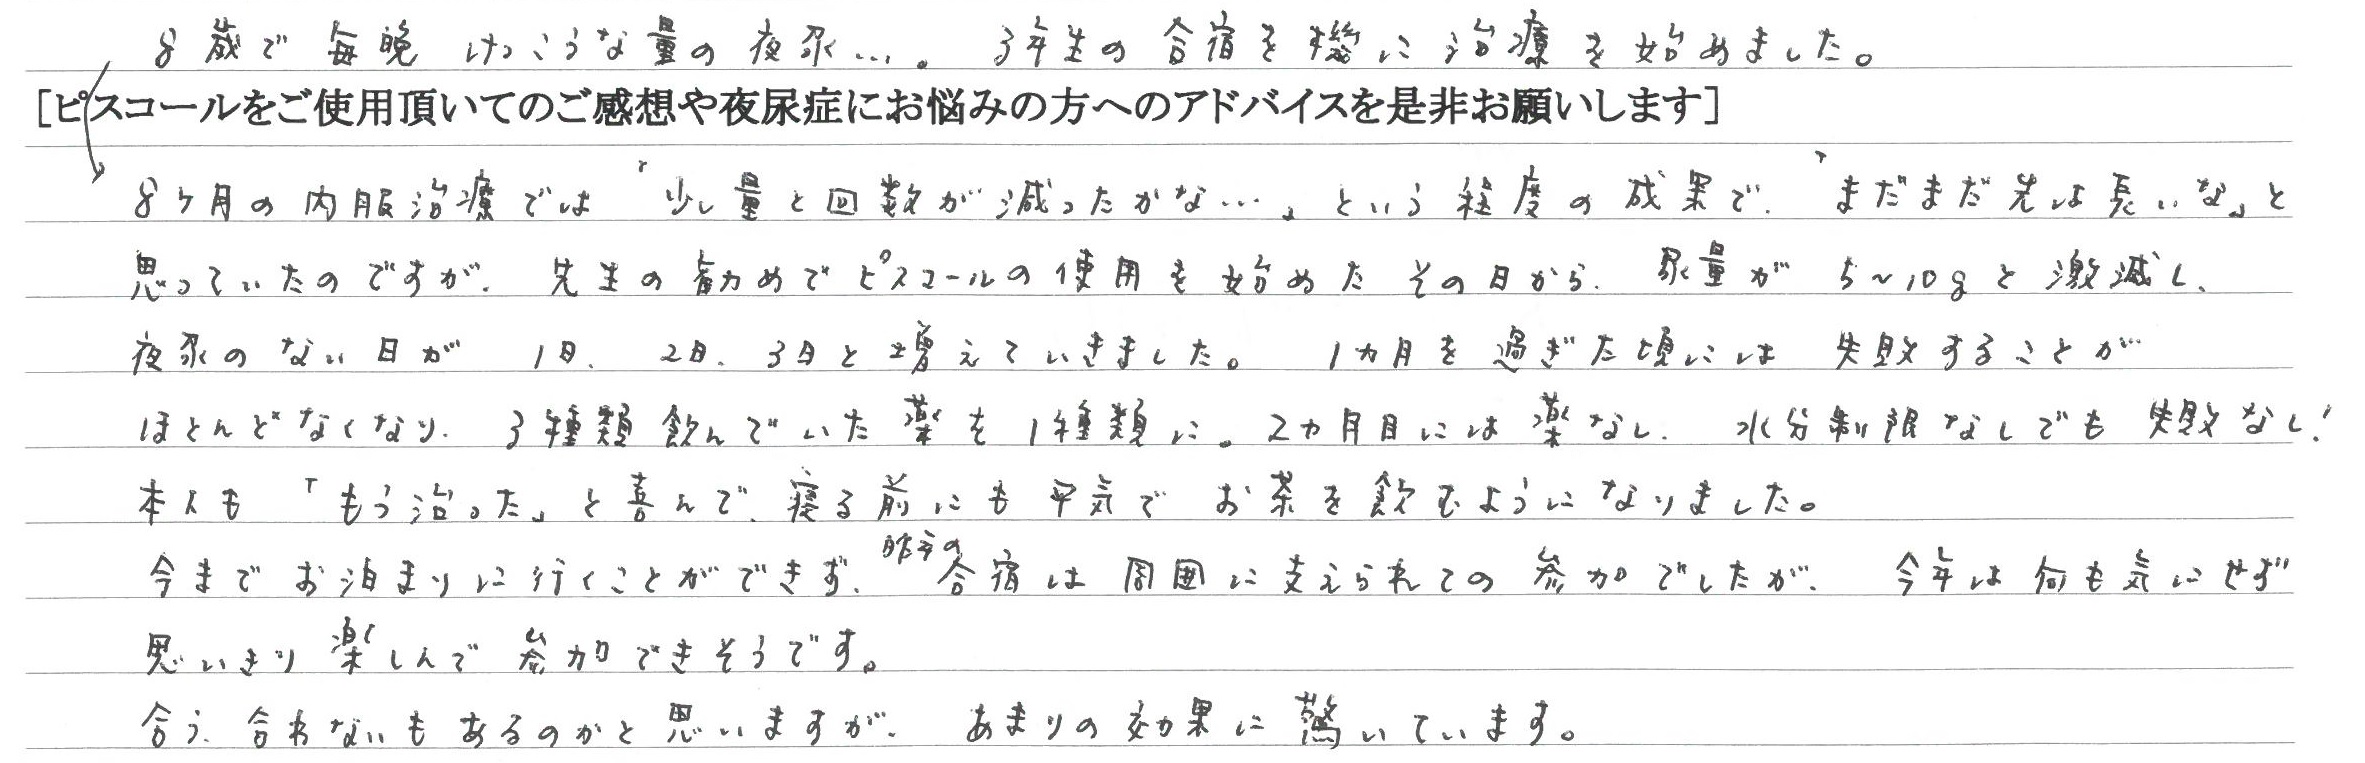 8歳で毎晩けっこうな量の夜尿…。 3年生の合宿を機に治療を始めました。
[ピスコールをご使用頂いてのご感想や夜尿症にお悩みの方へのアドバイスを是非お願いします]
8ヶ月の内服治療では「少し量と回数が減ったかな…」という程度の成果で、「まだまだ先は長いな」と
思っていたのですが、先生の勧めでピスコールの使用を始めたその日から、尿量が5~10gと激減し、
夜尿のない日が 1日、2日、3日と増えていきました。 1カ月を過ぎた頃には失敗することが
ほとんどなくなり、3種類飲んでいた薬を1種類に。2カ月目には薬なし、水分制限なしでも失敗なし!
本人も「もう治った」と喜んで、寝る前にも平気でお茶を飲むようになりました。
今までお泊まりに行くことができず、昨年の合宿は周囲に支えられての参加でしたが、今年は何も気にせず
思いきり楽しんで参加できそうです。
合う、合わないもあるのかと思いますが、あまりの効果に驚いています。